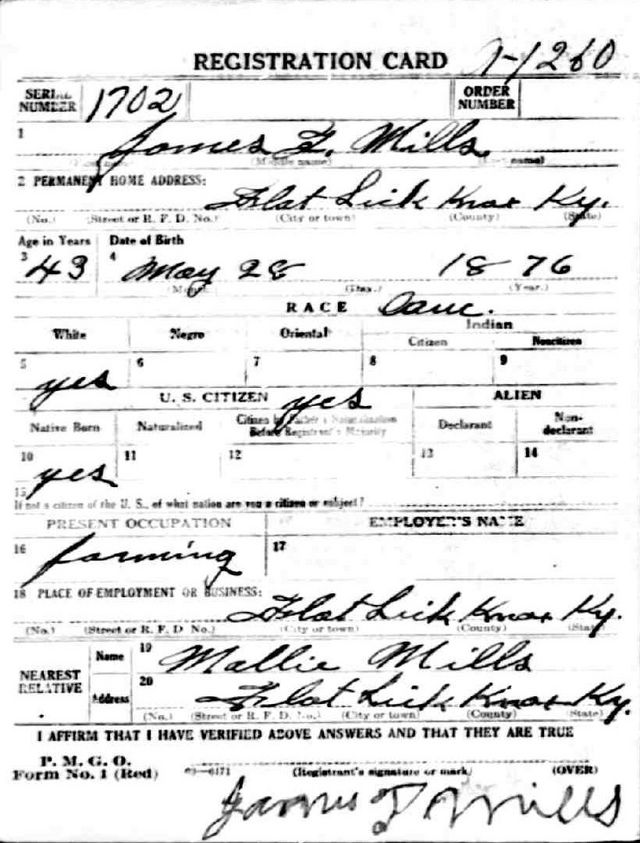 REGISTRATION CARD 1-1260
SERIAL NUMBER 1702 ORDER NUMBER
1 James F. Mills
(Middle name) (Last name)
2 PERMANENT HOME ADDRESS:
Flat Lick Knox Ky.
(No.) (Street or R. F. D. No.) (City or town) (County) (State)
Age in Years Date of Birth
3 43 4 May 28 1876
(Month.) (Day.) (Year.)
RACE Cauc.
White Negro Oriental Indian
Citizen Noncitizen
5 yes 6 7 8 9
U. S. CITIZEN yes ALIEN
Native Born Naturalized Citizen by Father's Naturalization Before Registrant's Majority Declarant Non-declarant
10 yes 11 12 13 14
15
If not a citizen of the U. S., of what nation are you a citizen or subject?
PRESENT OCCUPATION EMPLOYER'S NAME
16 farming 17
18 PLACE OF EMPLOYMENT OR BUSINESS:
Flat Lick Knox Ky.
(No.) (Street or R. F. D No.) (City or town) (County) (State)
NEAREST RELATIVE Name 19 Mallie Mills
Address 20 Flat Lick Knox Ky.
(No.) (Street or R. F. D. No.) (City or town) (County) (State)
I AFFIRM THAT I HAVE VERIFIED ABOVE ANSWERS AND THAT THEY ARE TRUE
P. M. G. O.
Form No. 1 (Red) 03—6171 (Registrant's signature or mark) (OVER)
James F Mills